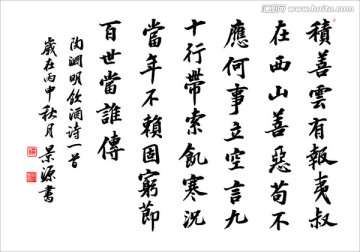 積善雲有報夷叔
在西山善惡苟不
應何事立空言九
十行帶索飢寒況
當年不賴固窮節
百世當誰傳
陶淵明飲酒诗一首
歲在丙申秋月 景源書
www.huitu.com